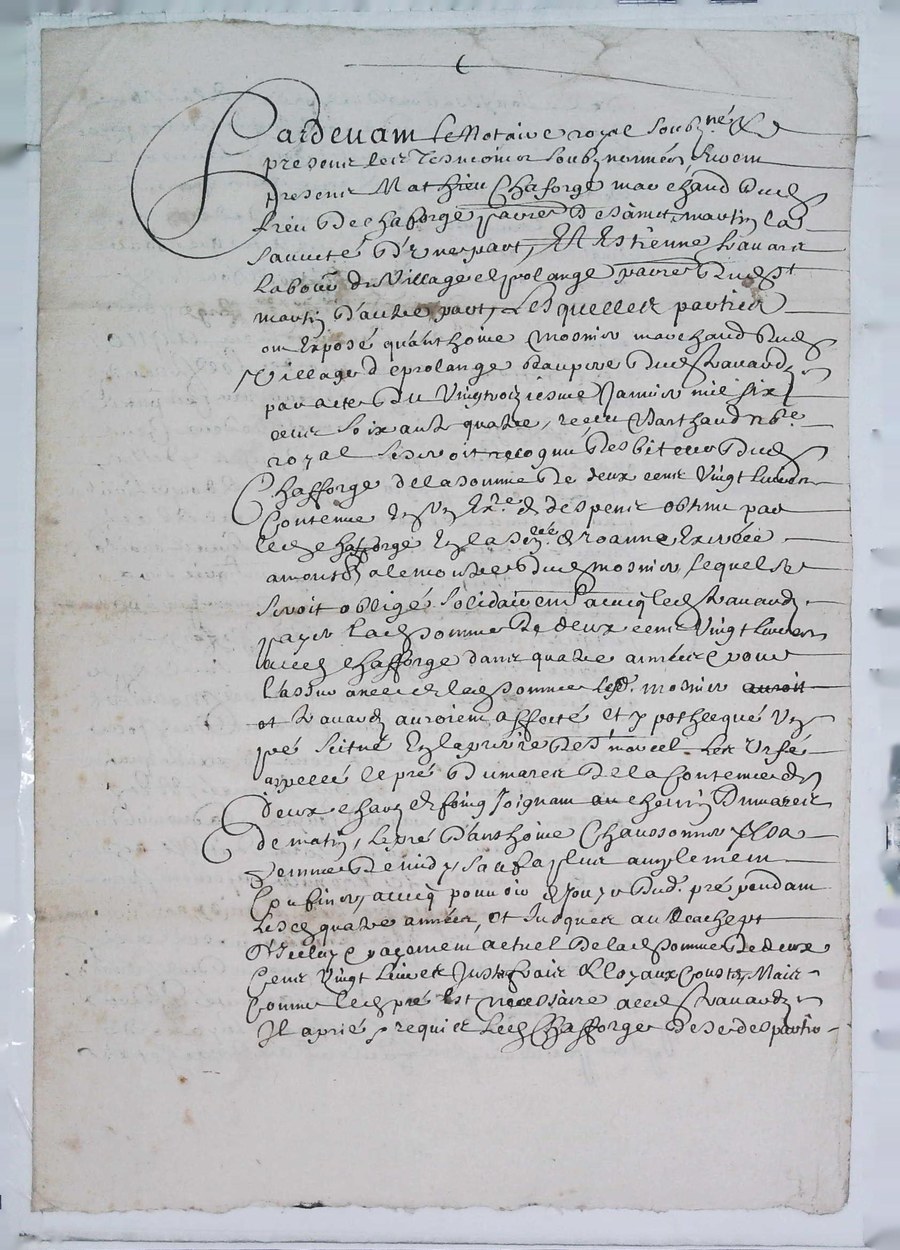 Pardevant Le Notaire royal soubz.né &
presents les tesmoings soubznommés furent
presens Mathieu Chaforge marchand dud
lieu de chaforge parroisse de sainct martin la
sauveté d'une part, Et Estienne Lavand
Labour. du Village esprolange parroisse dud St
martin d'autre part, Lesquelles parties
ont Exposé qu'anthoine mosnier marchand dud
Village d'eprolange beaupere dud Lavand,
par acte du Vingtroiziesme Janvier mil six
cent soixante quatre, receu Barthaud no.re
royal seseroit recognu desbiteur dud
Chafforge de la somme de deux cent Vingt livres
Contenue En Un Ex.re de despens obtenu par
led chafforge En la Sen.ée de roanne, Exercée
amont alemontee dud mosnier, lequel se
seroit obligé solidairement avecq led Lavand,
payer lad somme de deux cent Vingt livres
aud chafforge dans quatre années, et pour
l'assurance de lad somme led. mosnier auroit
et Lavand auroient affecté et ypothecqué Un
pré scitué En la prairie de St marcel les Ursé
appellé le pré du mares de la Contenue de
deux chars de foing Joignant au chemin du mares
de matin, Le pré d'anthoine Chaussonnier
de midy, sauf a plus amplement
Confiner, avecq pouvoir de Jouyr dud. pré pendant
Lesd quatre années, et Jusques au Reachept
d'Icelluy et payement actuel de lad somme de deux
Cent Vingt livres fraix & loyaux Cousts, Mais
Comme led pré est necessaire aud Lavand,
Il a prié & requis Led Chafforge de se despartir